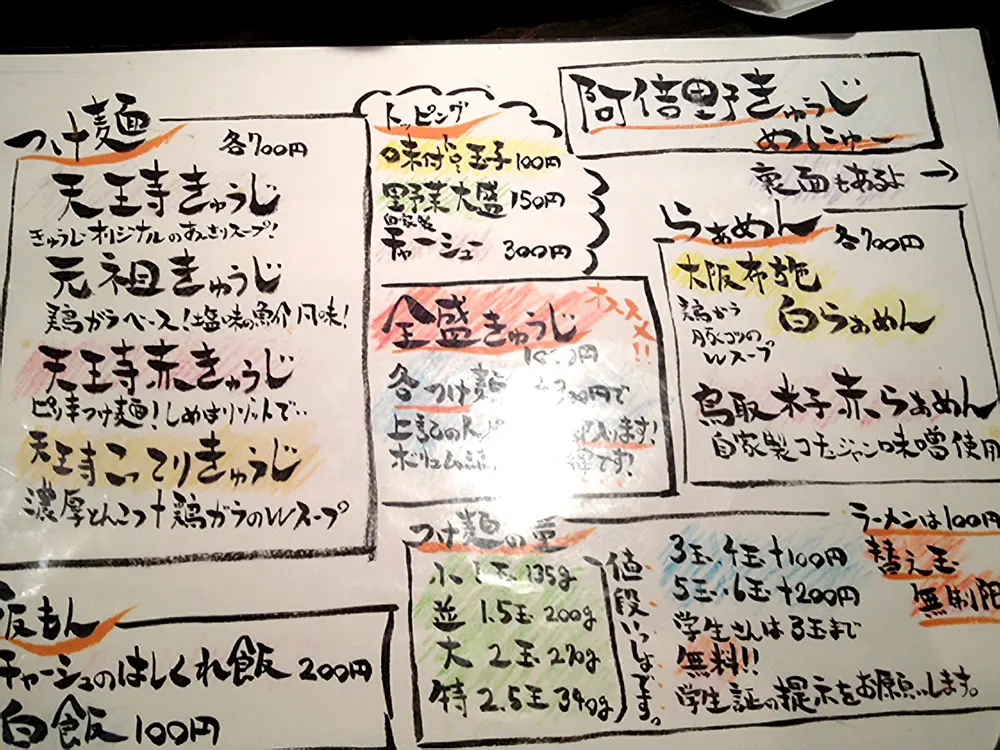 つけ麺
各700円
天王寺きゅうじ
きゅうじオリジナルのあっさりスープ!
元祖きゅうじ
鶏ガラベース!塩味の魚介風味!
天王寺赤きゅうじ
ピリ辛つけ麺!しめはリゾットで‥
天王寺こってりきゅうじ
濃厚とんこつ+鶏ガラのWスープ
飯もん
チャーシューのはしくれ飯 200円
白飯 100円
トッピング
味付玉子 100円
野菜大盛 150円
自家製
チャーシュー 300円
全盛きゅうじ
オススメ!!
円
各つけ麺 +300円で
上記の います!
ボリューム です!
阿倍野きゅうじ
めにゅー
裏面もあるよ →
らぁめん
各700円
大阪布施
白らぁめん
鶏ガラ
豚コツの
Wスープ
鳥取米子赤らぁめん
自家製コチュジャン味噌使用
つけ麺の量
小 1玉 135g
並 1.5玉 200g
大 2玉 270g
特 2.5玉 340g
値段いっしょです。
3玉、4玉+100円
5玉、6玉+200円
学生さんは3玉まで
無料!!
学生証の提示をお願いします。
ラーメンは100円
替え玉
無制限